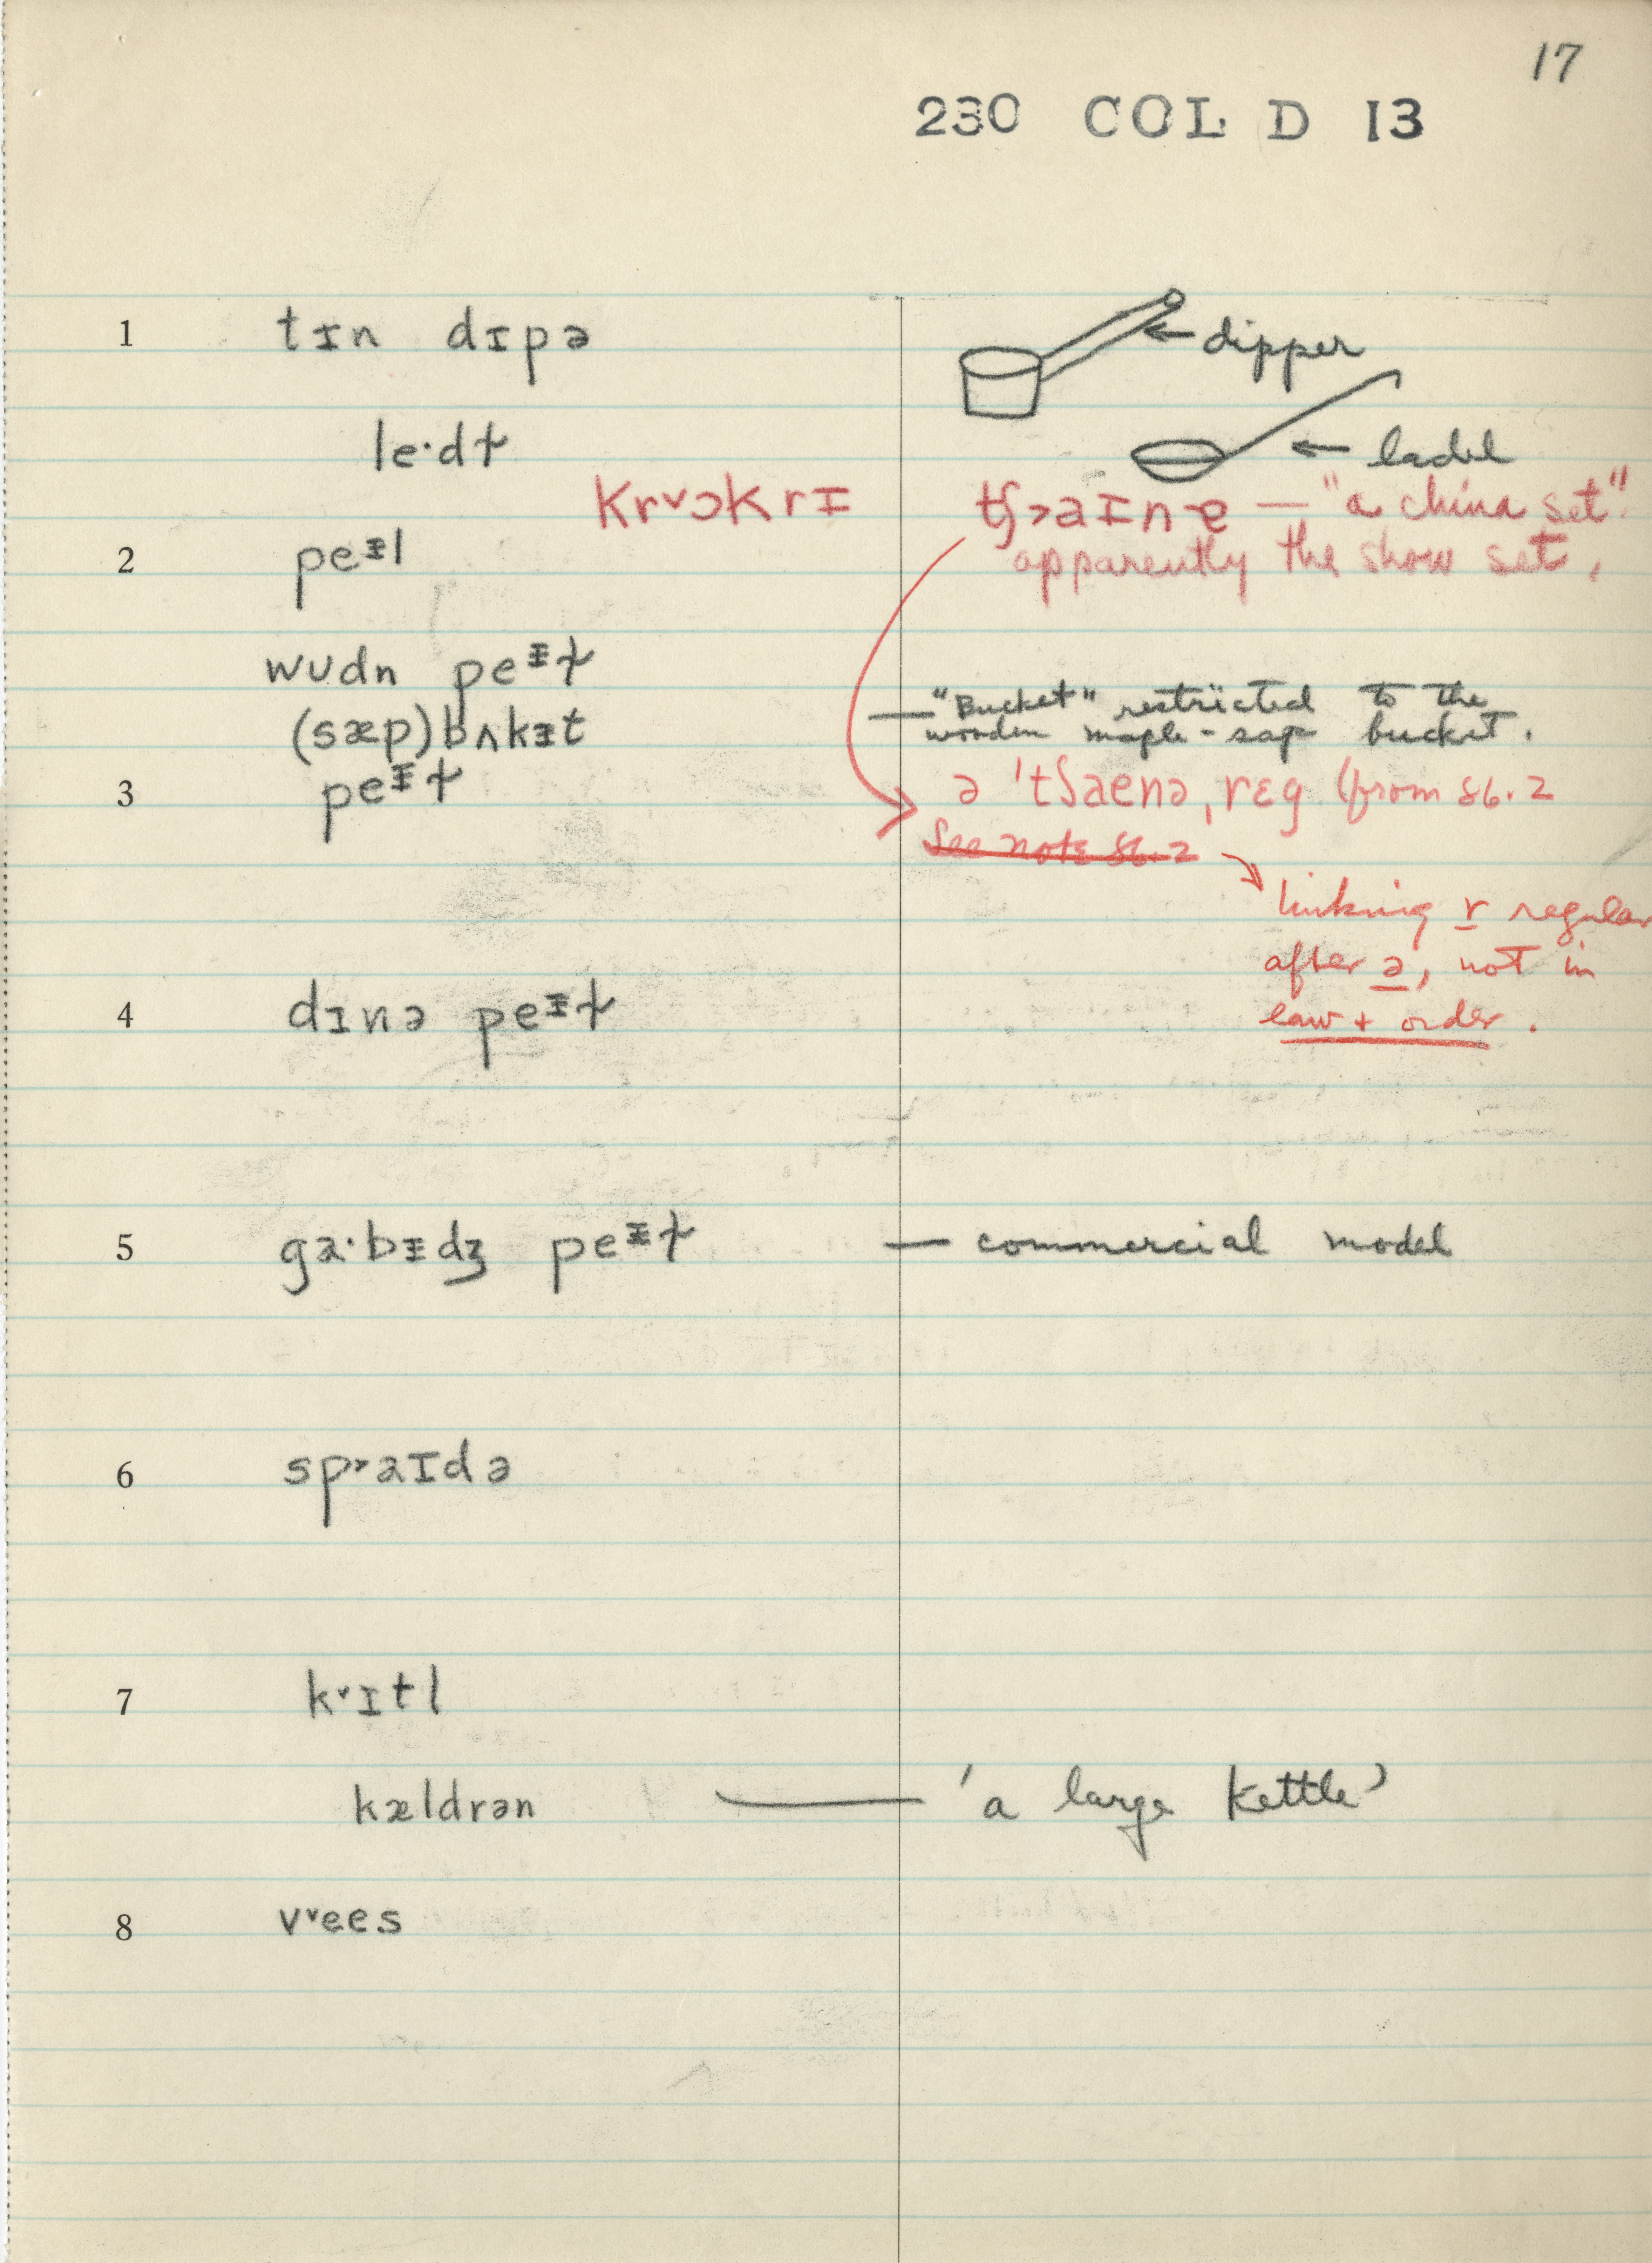 17
230 COL D 13
1 tɪn dɪpə ← dipper
le·dɫ ← ladel
krᵛɔkrɪ ʧ>aɪnɐ — "a china set"
2 peᵻl apparently the show set.
wʊdn peᵻɫ
(sæp)bʌkɪt — "Bucket" restricted to the
wooden maple-sap bucket.
3 peᵻɫ ə ˈtʃaenə, rɛg (from 86.2
See note 86.2
linking r regular
after ə, not in
law + order.
4 dɪnə peᵻɫ
5 ga·bɪdʒ peᵻɫ — commercial model
6 sp˒aɪdə
7 kᵛɪtl
kældrən — 'a large kettle'
8 vᵛees